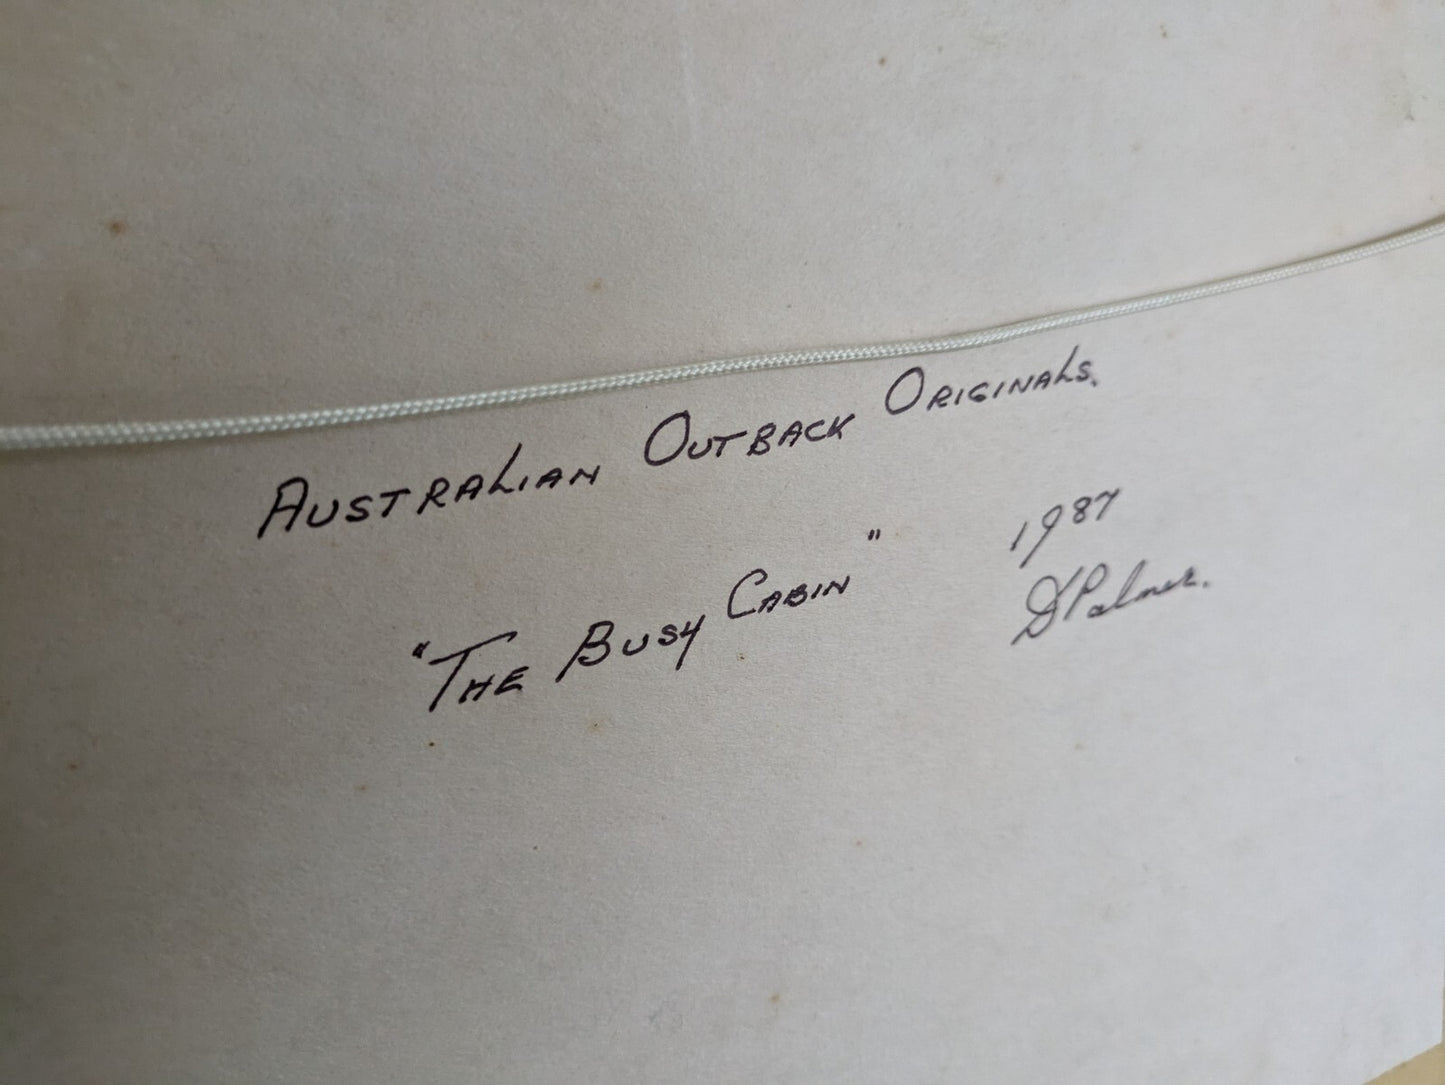 Australian Outback Originals.
"The Busy Cabin"
1987
D Palmer.